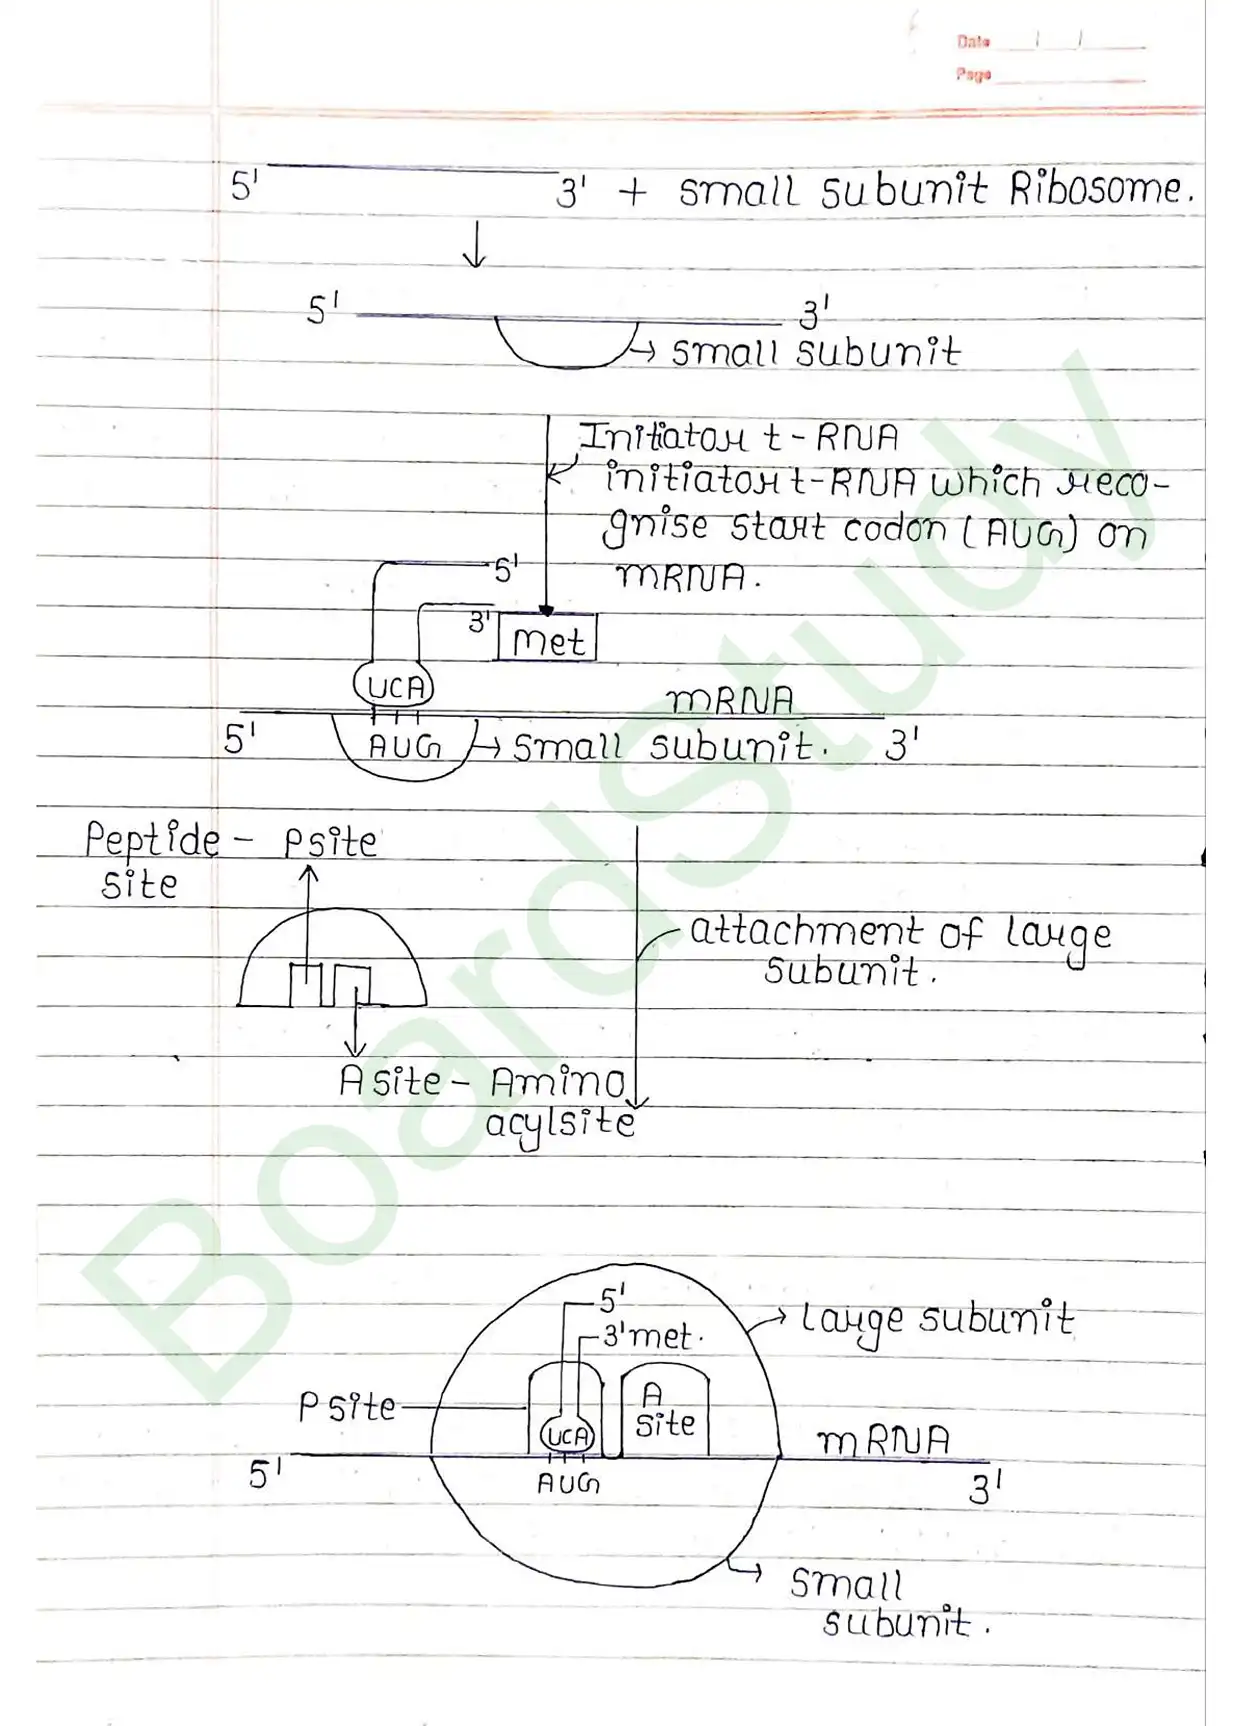 Date
Page
5' 3' + small subunit Ribosome.
5' 3'
small subunit
Initiator t-RNA
initiator t-RNA which reco-
gnise start codon (AUG) on
mRNA.
5'
3' met
UCA
mRNA
5' AUG small subunit. 3'
Peptide - P site
site
attachment of large
subunit.
A site - Amino
acylsite
5'
3' met.
large subunit
P site
A
site
UCA
mRNA
5' AUG 3'
small
subunit.
BoardStudy